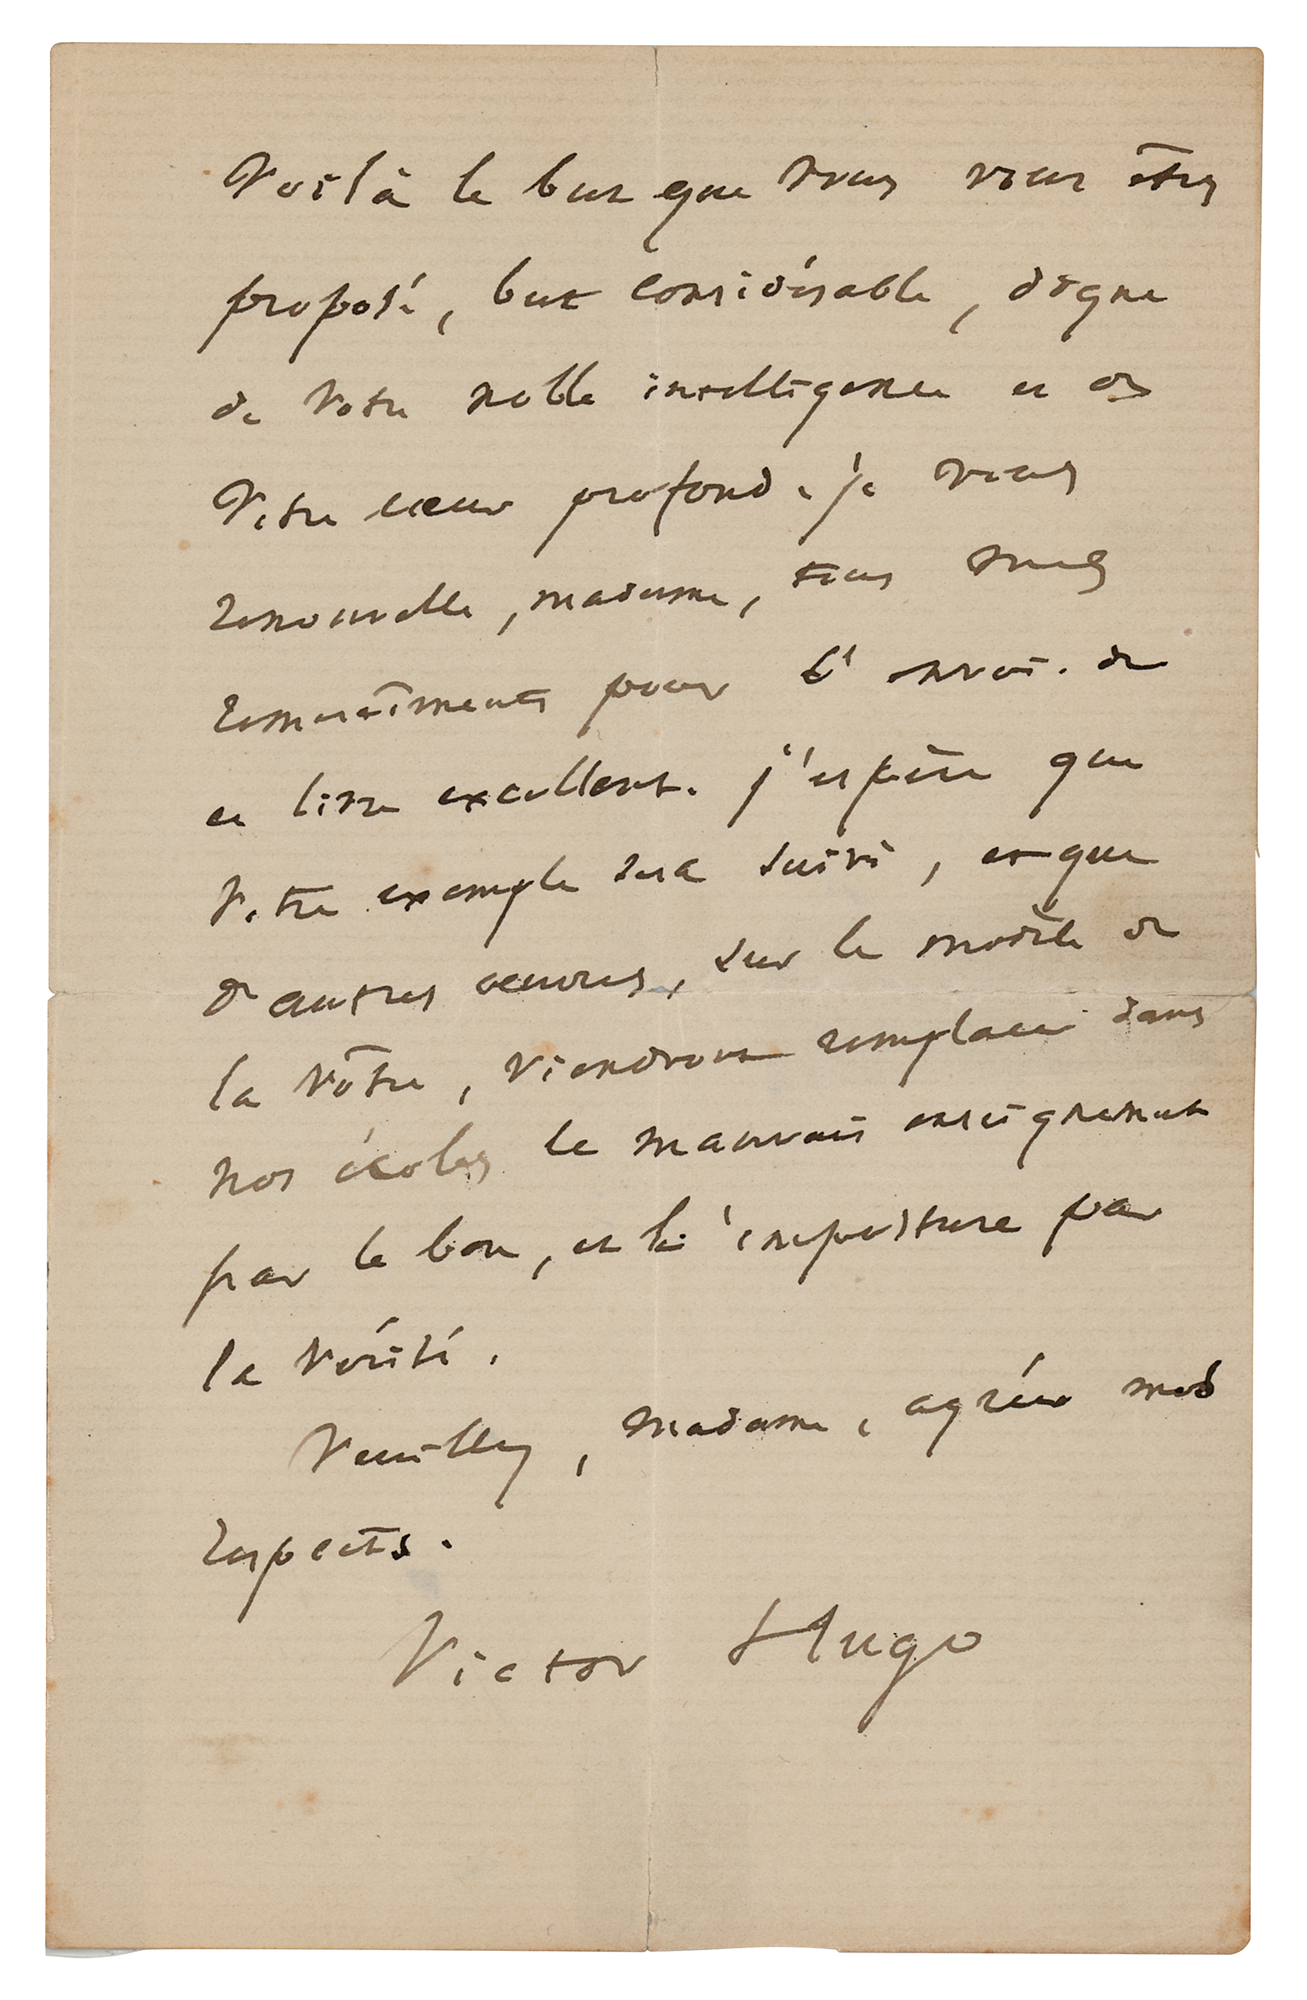 Voilà le but que vous vous êtes
proposé, but considérable, digne
de votre noble intelligence et de
votre cœur profond. je vous
renouvelle, madame, tous mes
remerciments pour l'envoi de
ce livre excellent. j'espère que
votre exemple sera suivi, et que
d'autres œuvres, sur le modèle de
la vôtre, viendront remplacer dans
nos écoles le mauvais enseignement
par le bon, et l'imposture par
la vérité.
Veuillez, madame, agréer mes
respects.
Victor Hugo